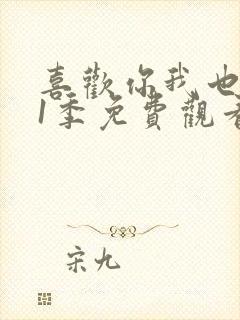 喜歡你我也
1季免費觀看
宋九